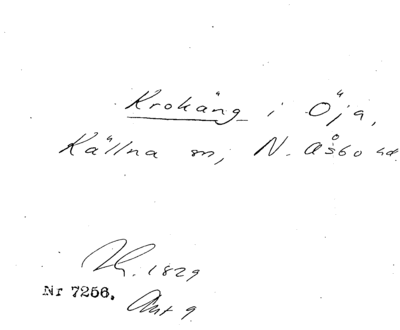 Krokäng i Öja,
Källna sn, N. Åsbo hd.
Th. 1829
Nr 7256.
Akt 9